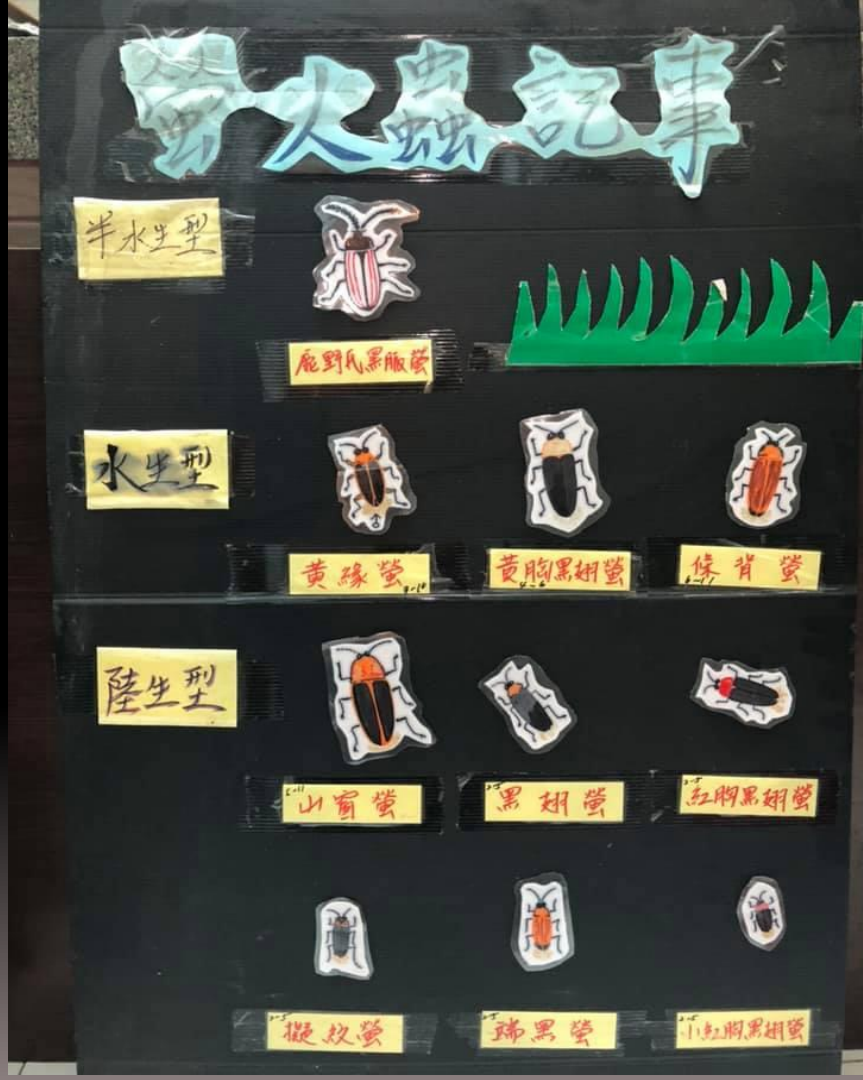 螢火蟲記事
半水生型
鹿野氏黑脈螢
水生型
黃緣螢
黃胸黑翅螢
4-6
條背螢
6-11
陸生型
山窗螢
黑翅螢
紅胸黑翅螢
擬紋螢
端黑螢
小紅胸黑翅螢